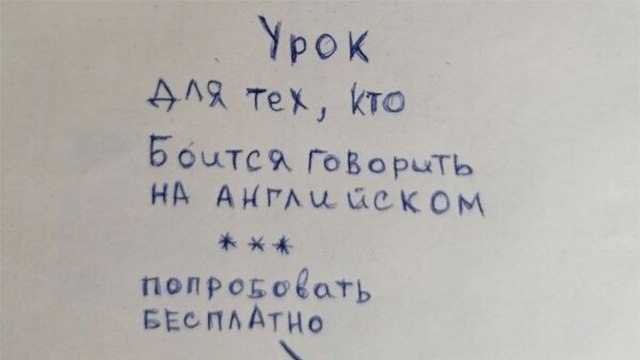 Урок
для тех, кто
Боится говорить
на английском
***
попробовать
бесплатно